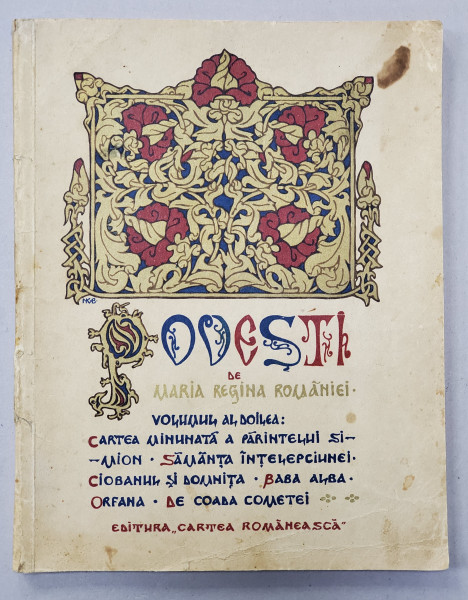 HGB
POVEȘTI
DE
MARIA REGINA ROMÂNIEI ·
VOLUMUL AL DOILEA:
CARTEA MINUNATĂ A PĂRINTELUI SI-
-MION · SĂMÂNȚA ÎNȚELEPCIUNEI ·
CIOBANUL ȘI DOMNIȚA · BABA ALBA ·
ORFANA · DE COADA COMETEI
EDITURA „CARTEA ROMÂNEASCĂ"